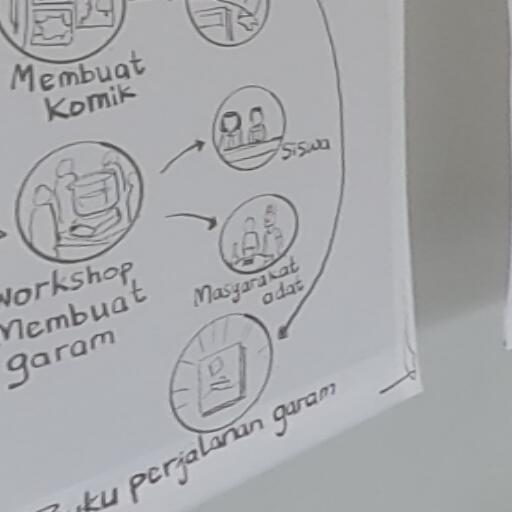 Membuat
Komik
Siswa
Workshop
Membuat
garam
Masyarakat
adat
Buku perjalanan garam